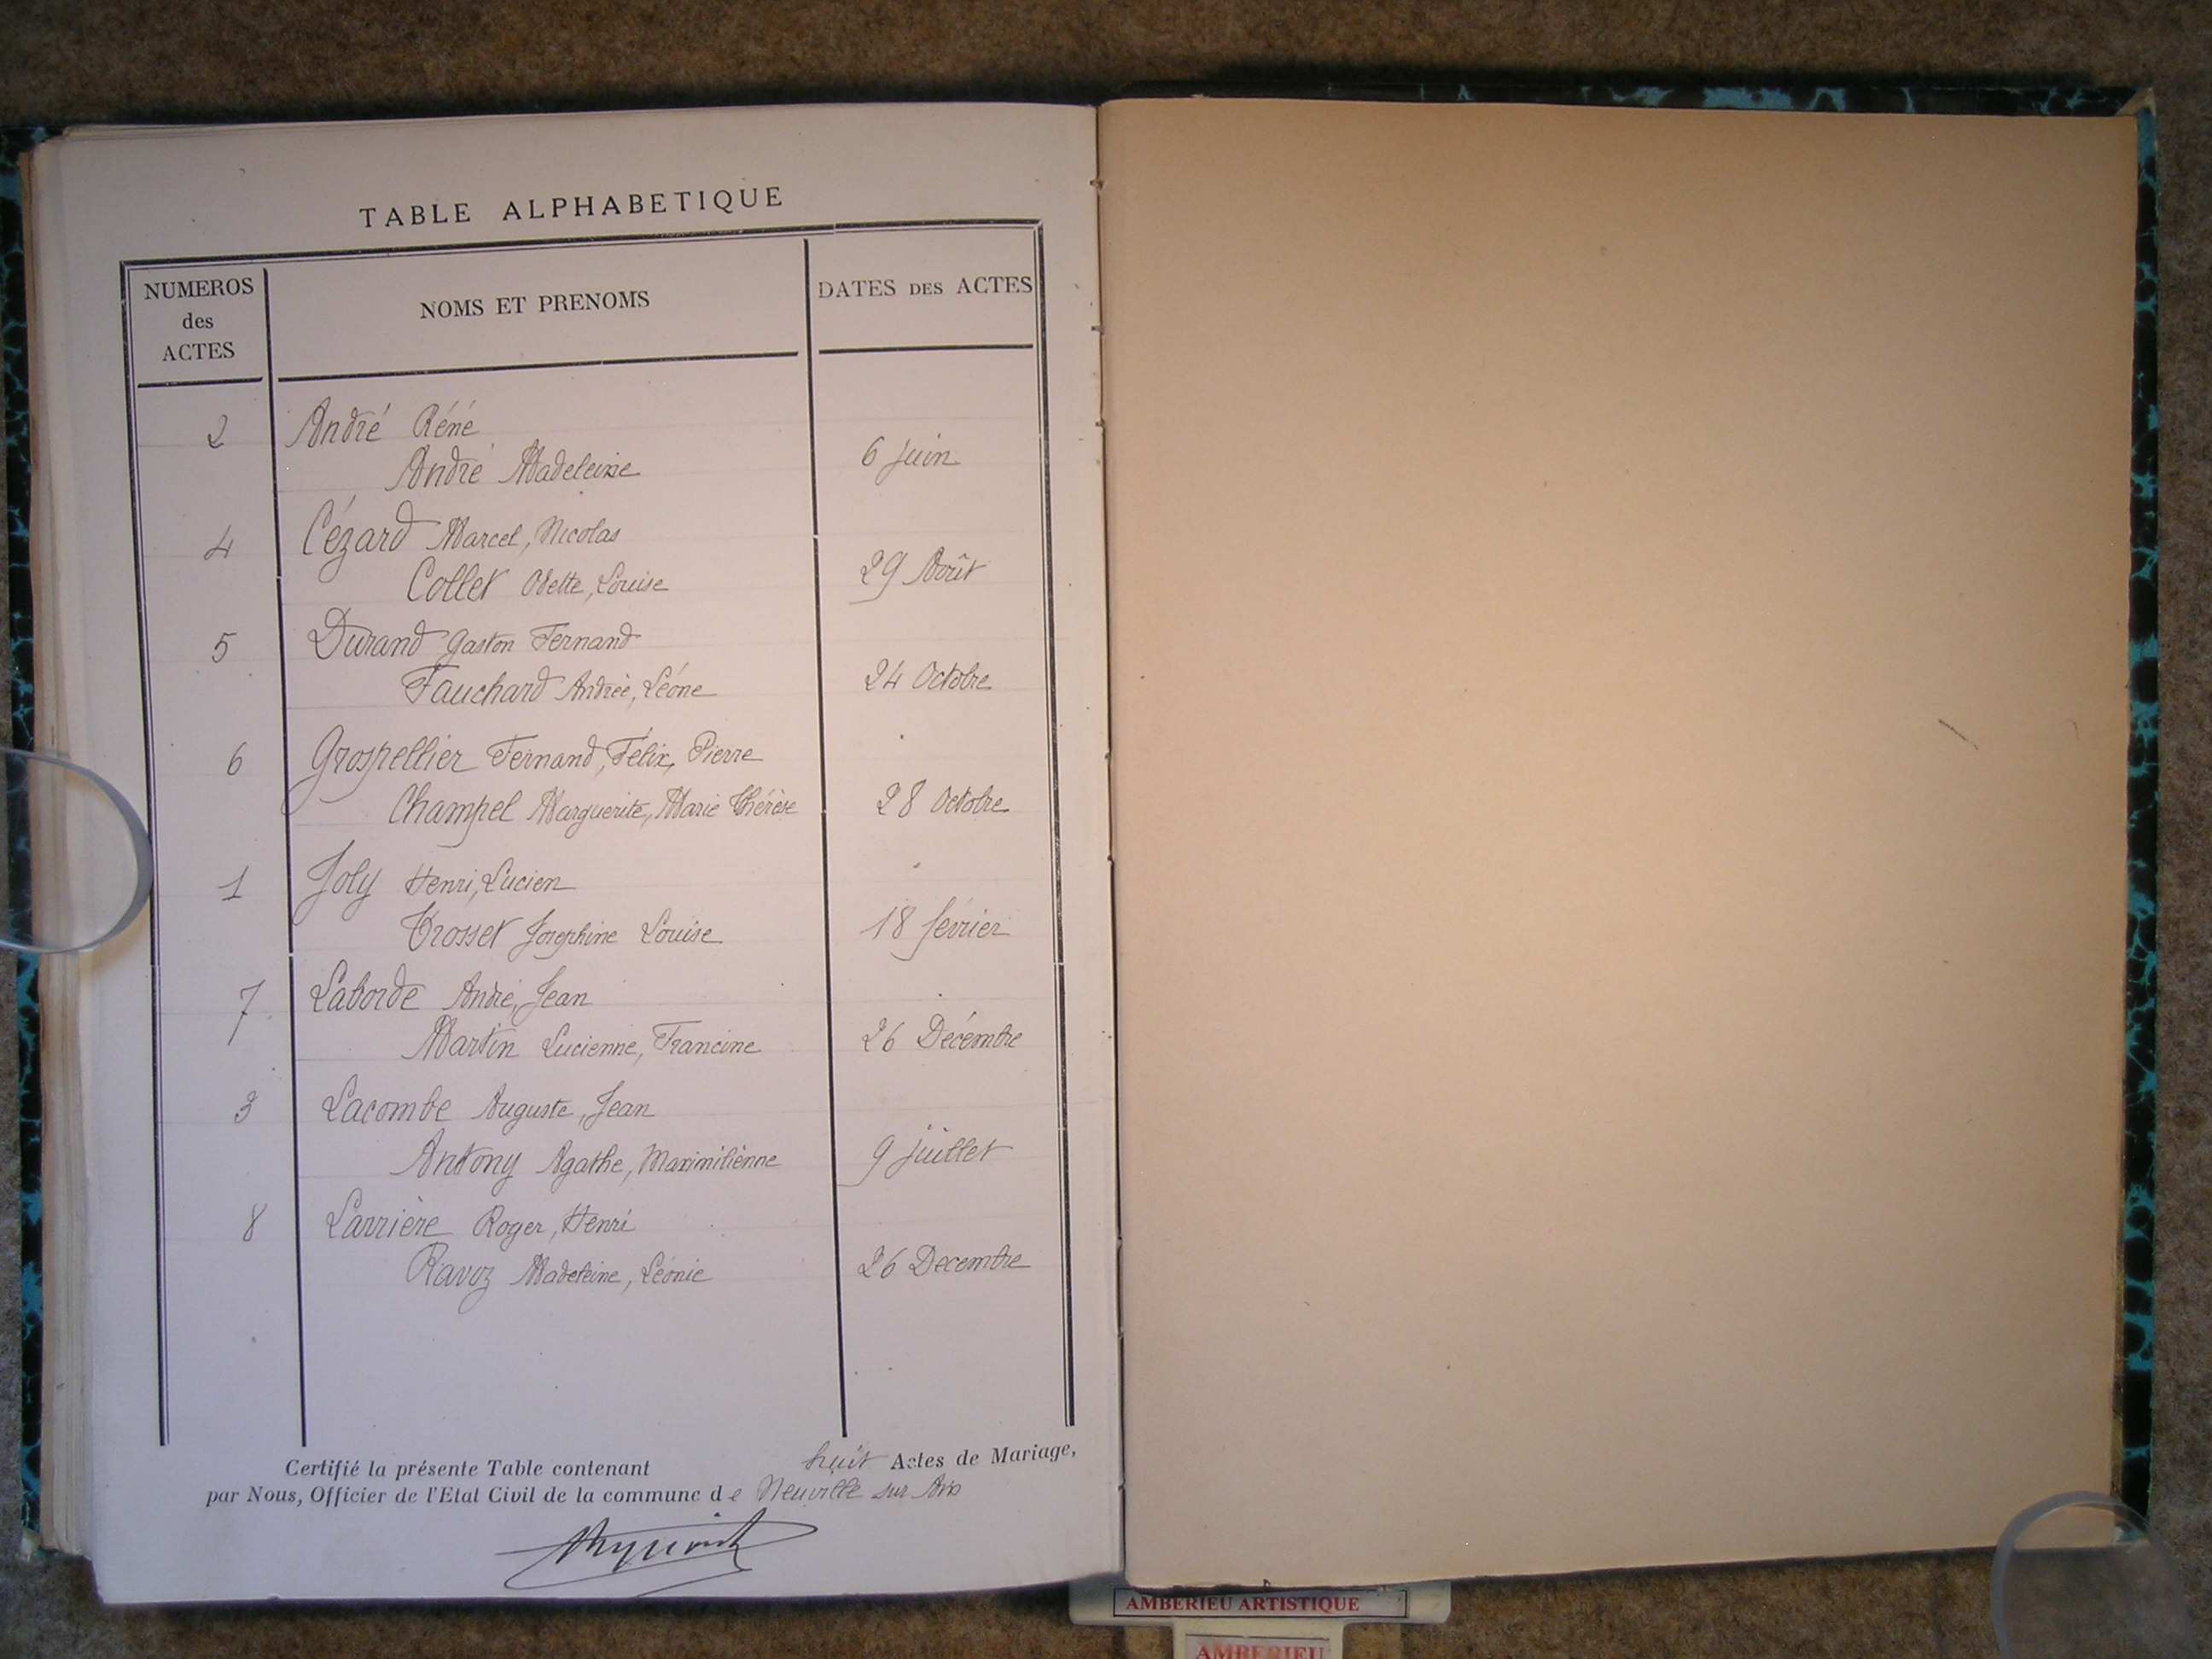 TABLE ALPHABETIQUE
NUMEROS
des
ACTES
NOMS ET PRENOMS
DATES DES ACTES
2 André Réné
André Madeleine 6 Juin
4 Cézard Marcel, Nicolas
Collet Odette, Louise 29 Août
5 Durand Gaston Fernand
Fauchard Andrée, Léone 24 Octobre
6 Grospellier Fernand, Félix, Pierre
Champel Marguerite, Marie Thérèse 28 Octobre
1 Joly Henri, Lucien
Trosset Josephine Louise 18 février
7 Laborde André, Jean
Martin Lucienne, Francine 26 Décembre
3 Lacombe Auguste, Jean
Antony Agathe, Maximilienne 9 juillet
8 Larrière Roger, Henri
Ravoz Madeleine, Léonie 26 Decembre
Certifié la présente Table contenant huit Actes de Mariage,
par Nous, Officier de l'Etat Civil de la commune de Neuville sur Ain
AMBERIEU ARTISTIQUE
AMBERIEU